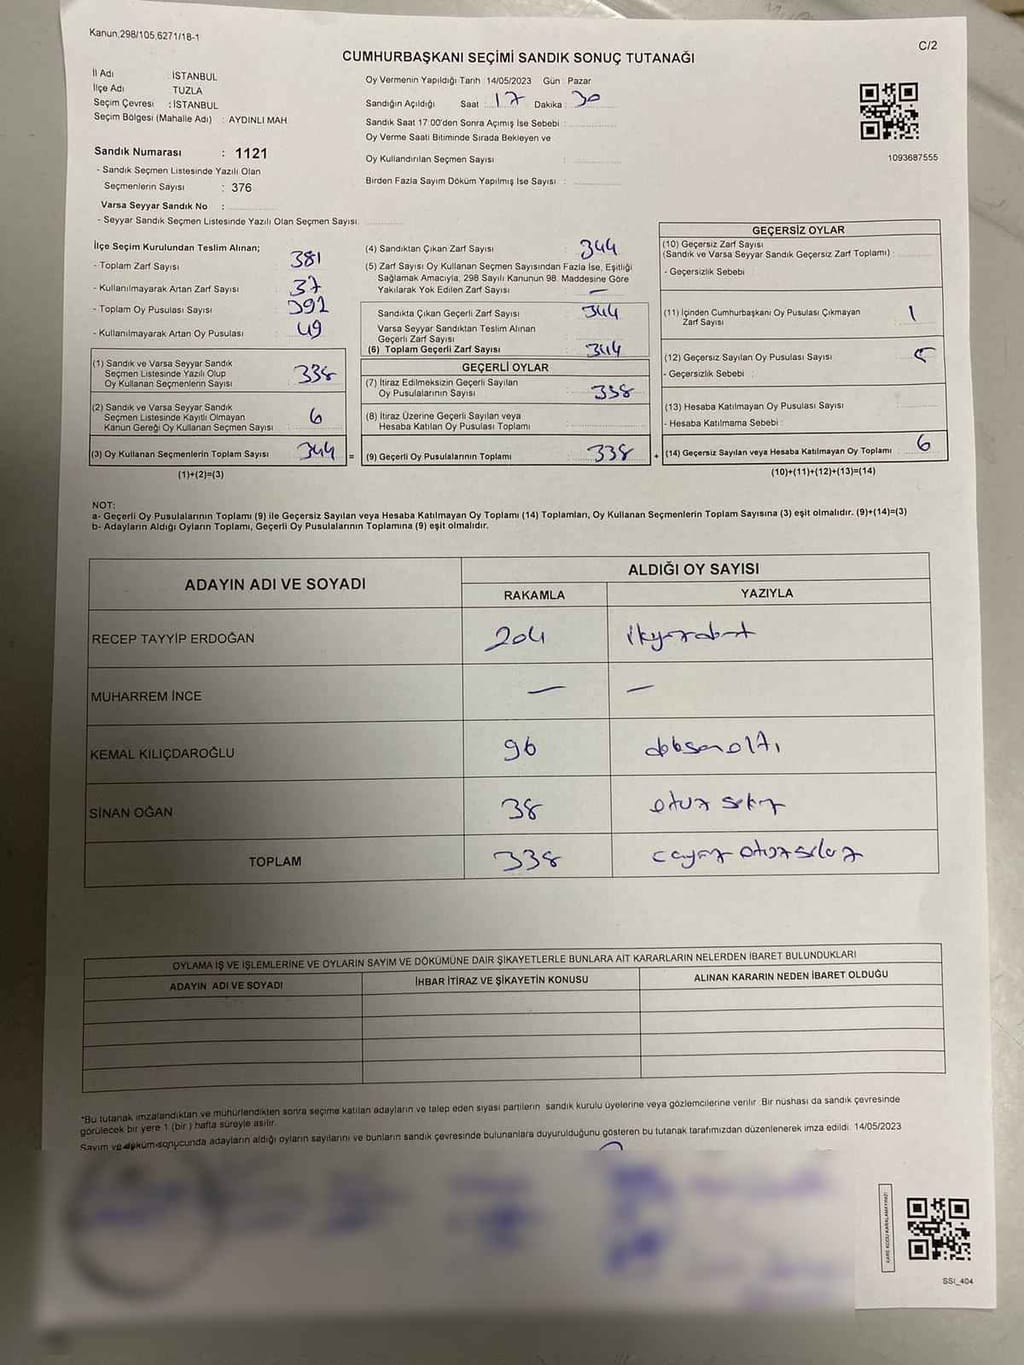 Kanun,298/105,6271/18-1
C/2
CUMHURBAŞKANI SEÇİMİ SANDIK SONUÇ TUTANAĞI
İl Adı : İSTANBUL
İlçe Adı TUZLA
Seçim Çevresi : İSTANBUL
Seçim Bölgesi (Mahalle Adı) : AYDINLI MAH
Oy Vermenin Yapıldığı Tarih 14/05/2023 Gün Pazar
Sandığın Açıldığı Saat 17 Dakika 30
Sandık Saat 17:00'den Sonra Açımış İse Sebebi :
Oy Verme Saati Bitiminde Sırada Bekleyen ve
Oy Kullandırılan Seçmen Sayısı :
Birden Fazla Sayım Döküm Yapılmış İse Sayısı :
1093687555
Sandık Numarası : 1121
- Sandık Seçmen Listesinde Yazılı Olan
Seçmenlerin Sayısı : 376
Varsa Seyyar Sandık No :
- Seyyar Sandık Seçmen Listesinde Yazılı Olan Seçmen Sayısı:
İlçe Seçim Kurulundan Teslim Alınan;
- Toplam Zarf Sayısı : 381
- Kullanılmayarak Artan Zarf Sayısı : 37
- Toplam Oy Pusulası Sayısı : 392
- Kullanılmayarak Artan Oy Pusulası : 49
(1) Sandık ve Varsa Seyyar Sandık
Seçmen Listesinde Yazılı Olup
Oy Kullanan Seçmenlerin Sayısı : 338
(2) Sandık ve Varsa Seyyar Sandık
Seçmen Listesinde Kayıtlı Olmayan
Kanun Gereği Oy Kullanan Seçmen Sayısı : 6
(3) Oy Kullanan Seçmenlerin Toplam Sayısı : 344 =
(1)+(2)=(3)
(4) Sandıktan Çıkan Zarf Sayısı : 344
(5) Zarf Sayısı Oy Kullanan Seçmen Sayısından Fazla İse, Eşitliği
Sağlamak Amacıyla, 298 Sayılı Kanunun 98. Maddesine Göre
Yakılarak Yok Edilen Zarf Sayısı : —
Sandıkta Çıkan Geçerli Zarf Sayısı : 344
Varsa Seyyar Sandıktan Teslim Alınan
Geçerli Zarf Sayısı :
(6) Toplam Geçerli Zarf Sayısı : 344
GEÇERLİ OYLAR
(7) İtiraz Edilmeksizin Geçerli Sayılan
Oy Pusulalarının Sayısı : 338
(8) İtiraz Üzerine Geçerli Sayılan veya
Hesaba Katılan Oy Pusulası Toplamı :
(9) Geçerli Oy Pusulalarının Toplamı : 338 +
GEÇERSİZ OYLAR
(10) Geçersiz Zarf Sayısı
(Sandık ve Varsa Seyyar Sandık Geçersiz Zarf Toplamı) :
- Geçersizlik Sebebi :
(11) İçinden Cumhurbaşkanı Oy Pusulası Çıkmayan
Zarf Sayısı : 1
(12) Geçersiz Sayılan Oy Pusulası Sayısı : 5
- Geçersizlik Sebebi :
(13) Hesaba Katılmayan Oy Pusulası Sayısı :
- Hesaba Katılmama Sebebi :
(14) Geçersiz Sayılan veya Hesaba Katılmayan Oy Toplamı : 6
(10)+(11)+(12)+(13)=(14)
NOT:
a- Geçerli Oy Pusulalarının Toplamı (9) ile Geçersiz Sayılan veya Hesaba Katılmayan Oy Toplamı (14) Toplamları, Oy Kullanan Seçmenlerin Toplam Sayısına (3) eşit olmalıdır. (9)+(14)=(3)
b- Adayların Aldığı Oyların Toplamı, Geçerli Oy Pusulalarının Toplamına (9) eşit olmalıdır.
ADAYIN ADI VE SOYADI
ALDIĞI OY SAYISI
RAKAMLA YAZIYLA
RECEP TAYYİP ERDOĞAN 204 ikiyüzdört
MUHARREM İNCE — —
KEMAL KILIÇDAROĞLU 96 doksanaltı
SİNAN OĞAN 38 otuz sekiz
TOPLAM 338 üçyüz otuzsekiz
OYLAMA İŞ VE İŞLEMLERİNE VE OYLARIN SAYIM VE DÖKÜMÜNE DAİR ŞİKAYETLERLE BUNLARA AİT KARARLARIN NELERDEN İBARET BULUNDUKLARI
ADAYIN ADI VE SOYADI İHBAR İTİRAZ VE ŞİKAYETİN KONUSU ALINAN KARARIN NEDEN İBARET OLDUĞU
*Bu tutanak imzalandıktan ve mühürlendikten sonra seçime katılan adayların ve talep eden siyasi partilerin sandık kurulu üyelerine veya gözlemcilerine verilir. Bir nüshası da sandık çevresinde
görülecek bir yere 1 (bir) hafta süreyle asılır.
Sayım ve döküm sonucunda adayların aldığı oyların sayılarını ve bunların sandık çevresinde bulunanlara duyurulduğunu gösteren bu tutanak tarafımızdan düzenlenerek imza edildi. 14/05/2023
KARE KODU KARALAMAYINIZ!
SSI_404